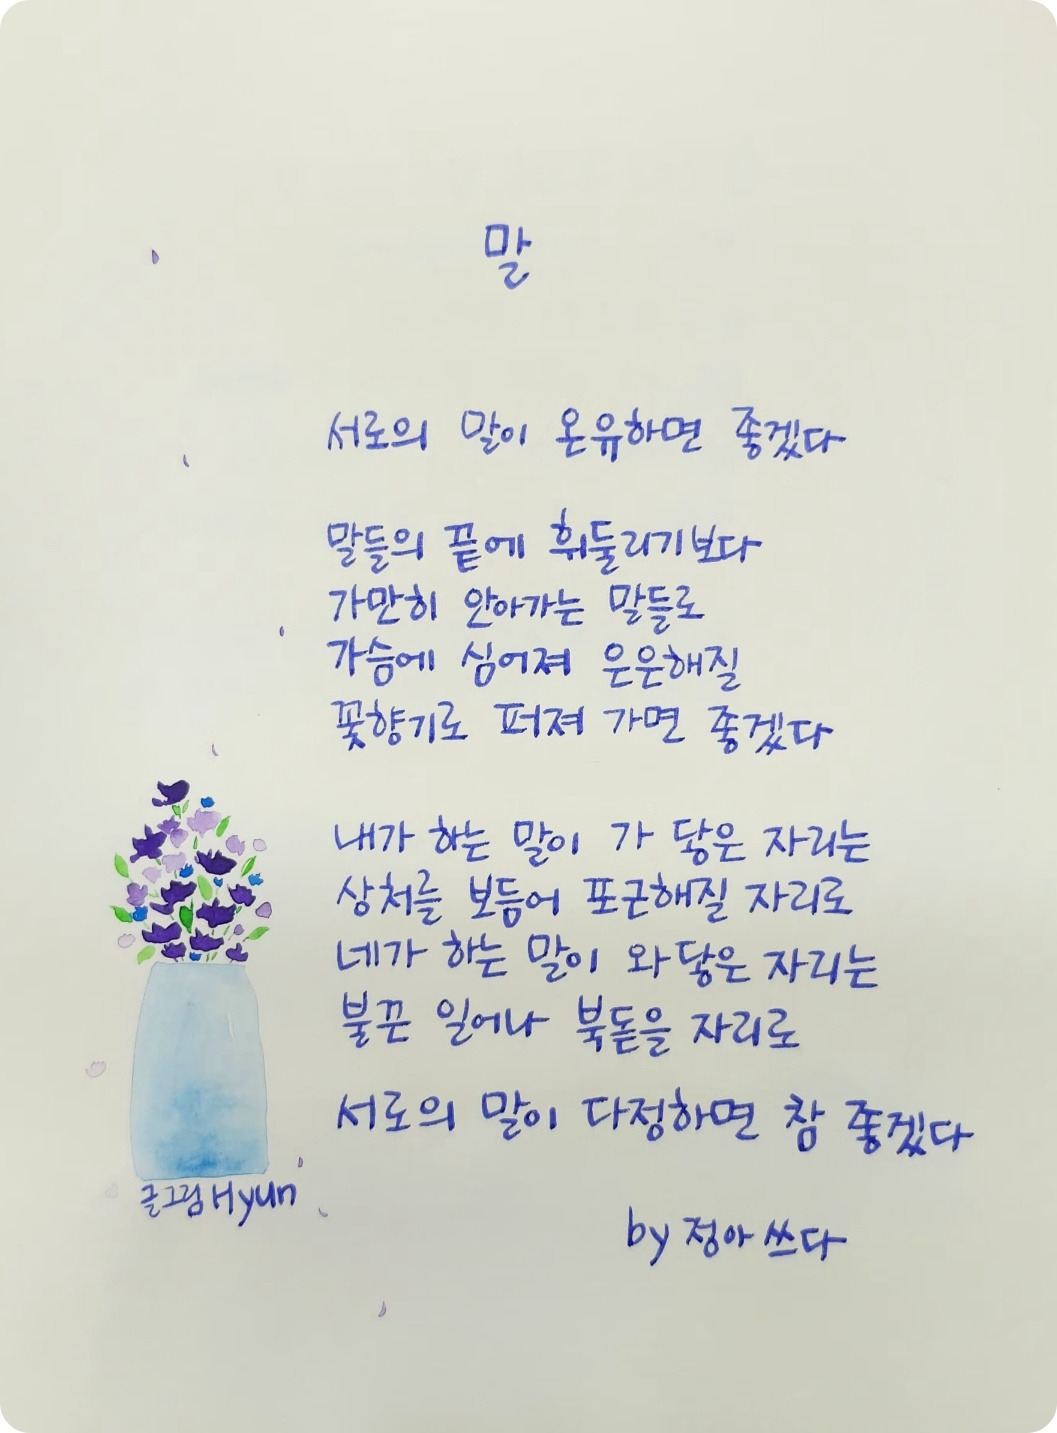 말
서로의 말이 온유하면 좋겠다
말들의 끝에 휘둘리기보다
가만히 안아가는 말들로
가슴에 심어져 은은해질
꽃향기로 퍼져 가면 좋겠다
내가 하는 말이 가 닿은 자리는
상처를 보듬어 포근해질 자리로
네가 하는 말이 와 닿은 자리는
불끈 일어나 북돋을 자리로
서로의 말이 다정하면 참 좋겠다
글그림 Hyun
by 정아 쓰다